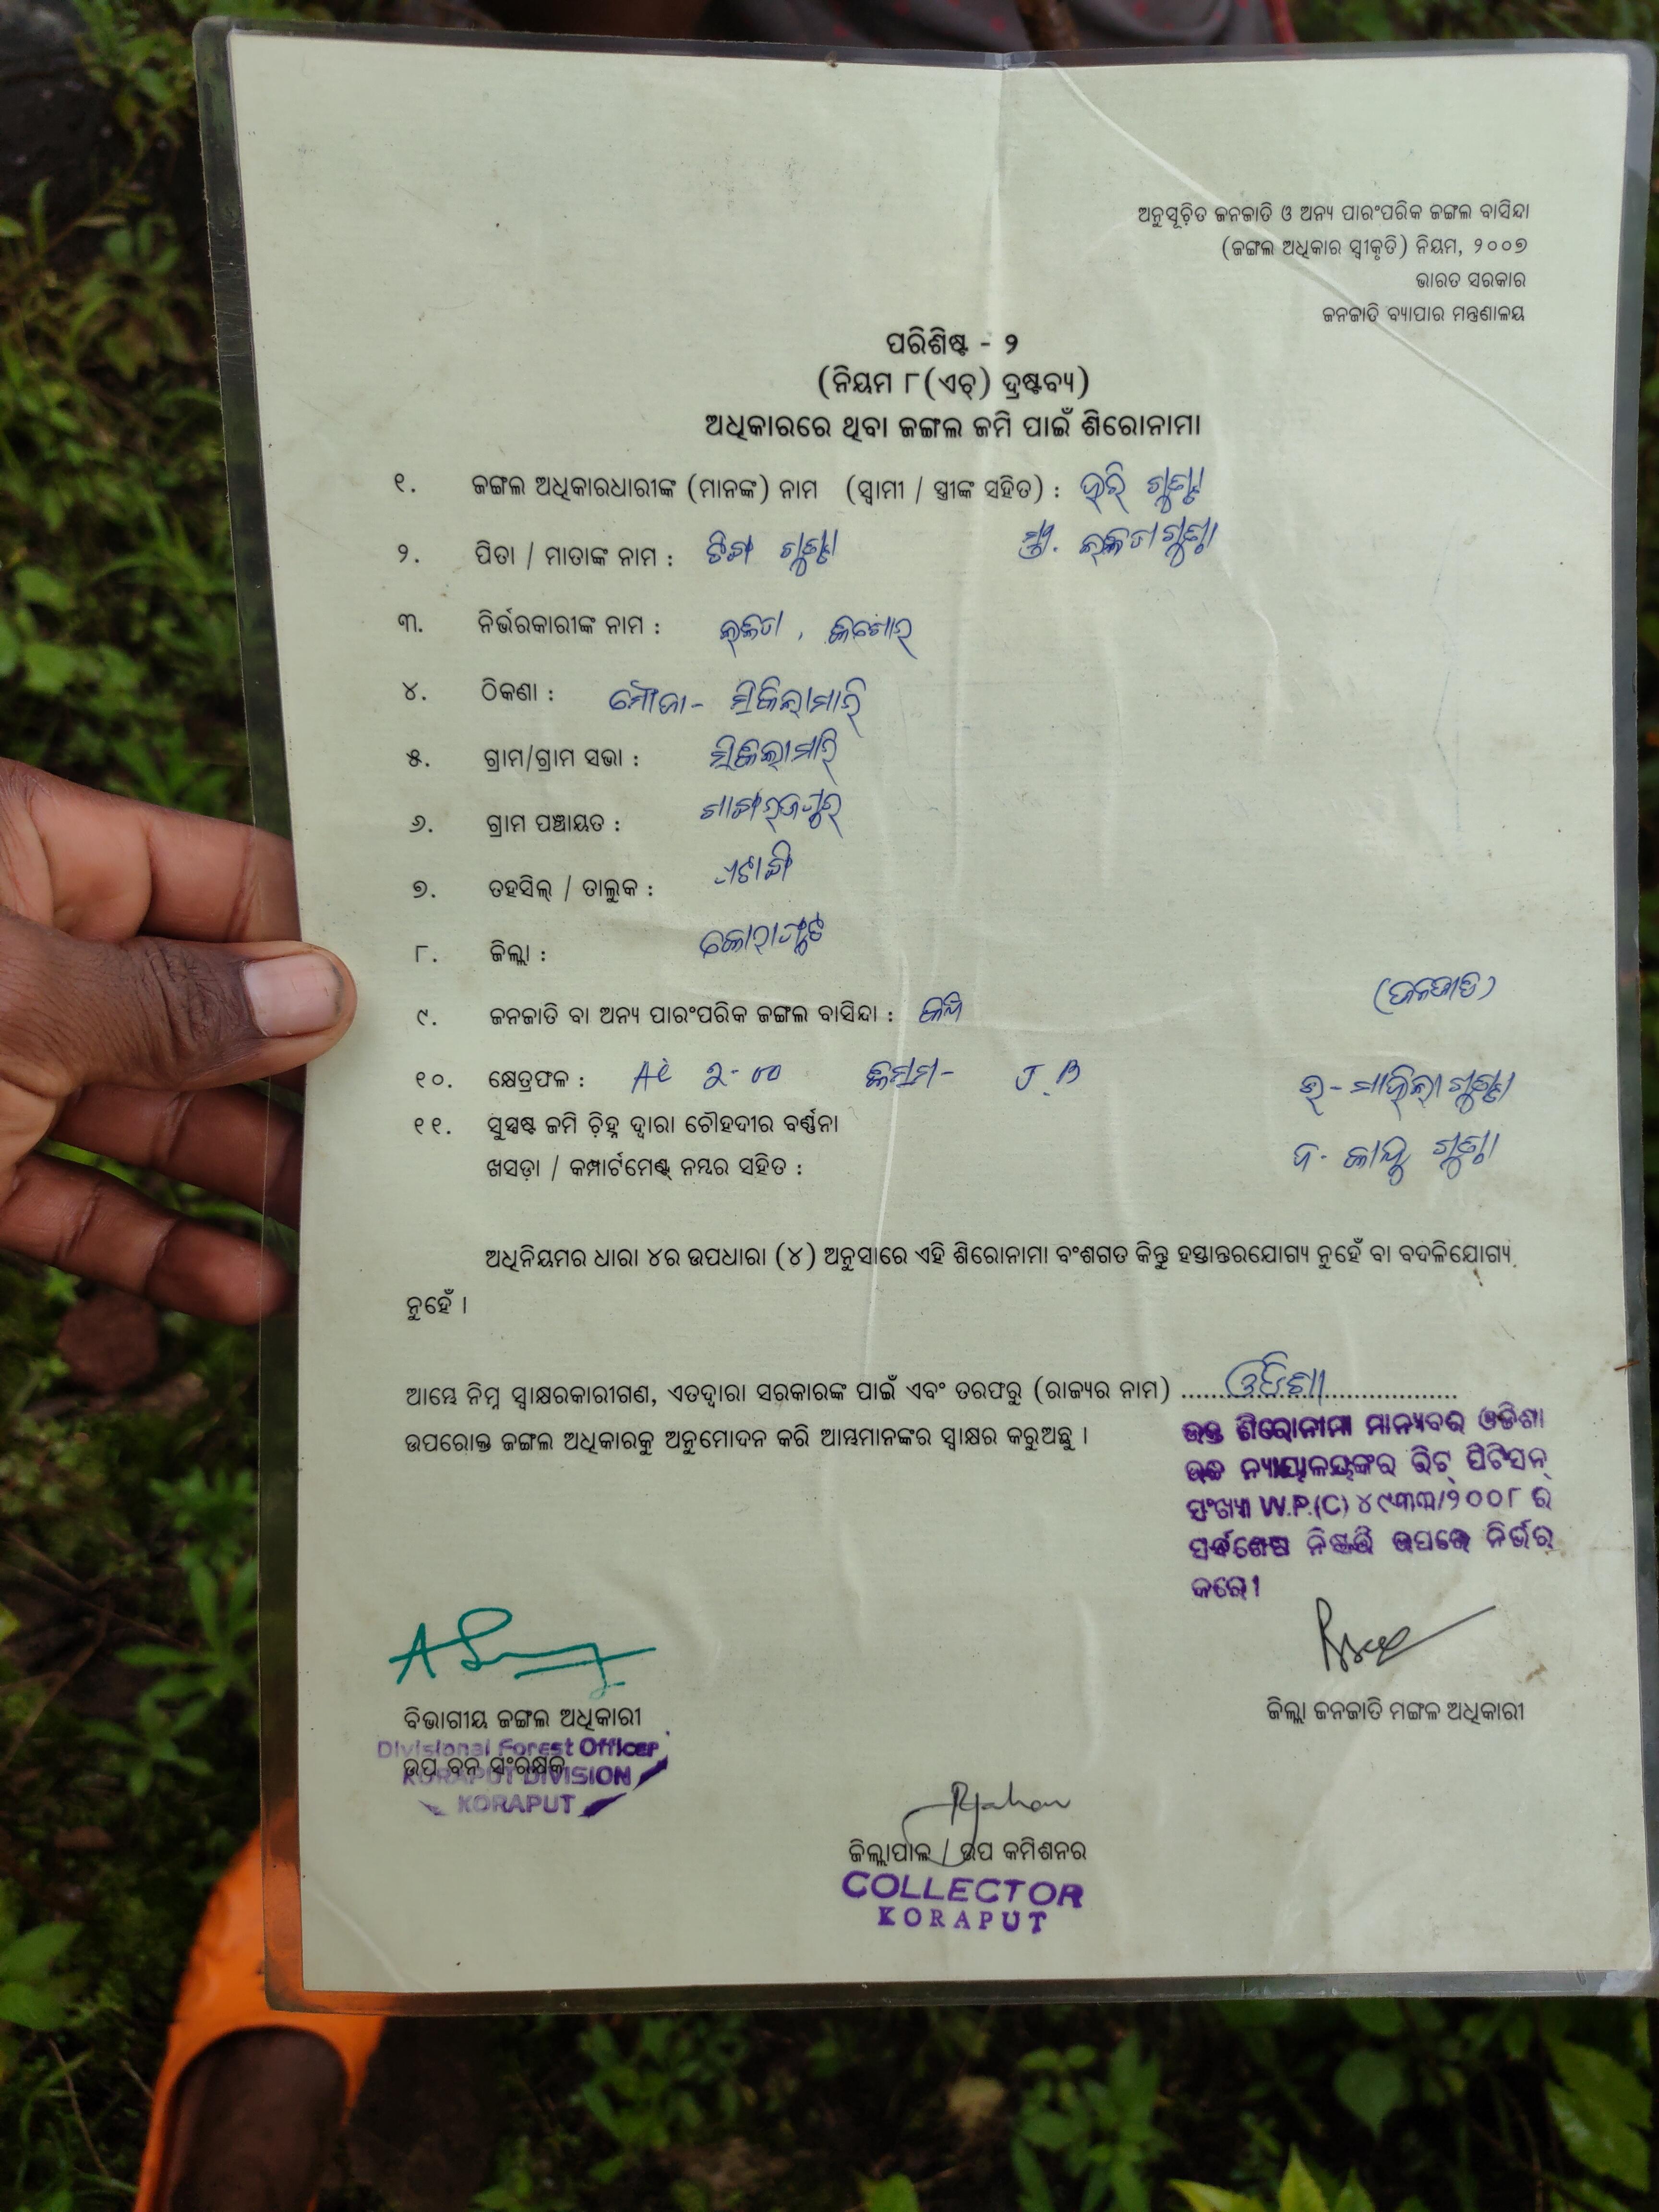 ଅନୁସୂଚିତ ଜନଜାତି ଓ ଅନ୍ୟ ପାରଂପରିକ ଜଙ୍ଗଲ ବାସିନ୍ଦା
(ଜଙ୍ଗଲ ଅଧିକାର ସ୍ୱୀକୃତି) ନିୟମ, ୨୦୦୭
ଭାରତ ସରକାର
ଜନଜାତି ବ୍ୟାପାର ମନ୍ତ୍ରଣାଳୟ
ପରିଶିଷ୍ଟ - ୨
(ନିୟମ ୮(ଏଚ୍) ଦ୍ରଷ୍ଟବ୍ୟ)
ଅଧିକାରରେ ଥିବା ଜଙ୍ଗଲ ଜମି ପାଇଁ ଶିରୋନାମା
୧. ଜଙ୍ଗଲ ଅଧିକାରଧାରୀଙ୍କ (ମାନଙ୍କ) ନାମ (ସ୍ୱାମୀ / ସ୍ତ୍ରୀଙ୍କ ସହିତ) : ହରି ଗୁଣ୍ଠା
୨. ପିତା / ମାତାଙ୍କ ନାମ : ଗୁଣ୍ଠା ସ୍ତ୍ରୀ.
୩. ନିର୍ଭରକାରୀଙ୍କ ନାମ : କିଶୋର
୪. ଠିକଣା : ମୌଜା -
୫. ଗ୍ରାମ/ଗ୍ରାମ ସଭା :
୬. ଗ୍ରାମ ପଞ୍ଚାୟତ :
୭. ତହସିଲ୍ / ତାଲୁକ :
୮. ଜିଲ୍ଲା : କୋରାପୁଟ
୯. ଜନଜାତି ବା ଅନ୍ୟ ପାରଂପରିକ ଜଙ୍ଗଲ ବାସିନ୍ଦା : (ଜନଜାତି)
୧୦. କ୍ଷେତ୍ରଫଳ : Ac 2-00 କିସମ- J.B
୧୧. ସୁସ୍ପଷ୍ଟ ଜମି ଚିହ୍ନ ଦ୍ୱାରା ଚୌହଦୀର ବର୍ଣ୍ଣନା
ଖସଡ଼ା / କମ୍ପାର୍ଟମେଣ୍ଟ୍ ନମ୍ବର ସହିତ : ଦ- ଗୁଣ୍ଠା
ଅଧିନିୟମର ଧାରା ୪ର ଉପଧାରା (୪) ଅନୁସାରେ ଏହି ଶିରୋନାମା ବଂଶଗତ କିନ୍ତୁ ହସ୍ତାନ୍ତରଯୋଗ୍ୟ ନୁହେଁ ବା ବଦଳିଯୋଗ୍ୟ
ନୁହେଁ ।
ଆମ୍ଭେ ନିମ୍ନ ସ୍ୱାକ୍ଷରକାରୀଗଣ, ଏତଦ୍ୱାରା ସରକାରଙ୍କ ପାଇଁ ଏବଂ ତରଫରୁ (ରାଜ୍ୟର ନାମ) ଓଡିଶା
ଉପରୋକ୍ତ ଜଙ୍ଗଲ ଅଧିକାରକୁ ଅନୁମୋଦନ କରି ଆମ୍ଭମାନଙ୍କର ସ୍ୱାକ୍ଷର କରୁଅଛୁ ।
ଉକ୍ତ ଶିରୋନାମା ମାନ୍ୟବର ଓଡିଶା
ଉଚ୍ଚ ନ୍ୟାୟାଳୟଙ୍କର ରିଟ୍ ପିଟିସନ୍
ସଂଖ୍ୟା W.P.(C) ୪୯୩୩/୨୦୦୮ ର
ସର୍ବଶେଷ ନିଷ୍ପତ୍ତି ଉପରେ ନିର୍ଭର
କରେ।
ବିଭାଗୀୟ ଜଙ୍ଗଲ ଅଧିକାରୀ
Divisional Forest Officer
ଉପ ବନ ସଂରକ୍ଷକ
KORAPUT DIVISION
KORAPUT
ଜିଲ୍ଲା ଜନଜାତି ମଙ୍ଗଳ ଅଧିକାରୀ
ଜିଲ୍ଲାପାଳ / ଉପ କମିଶନର
COLLECTOR
KORAPUT